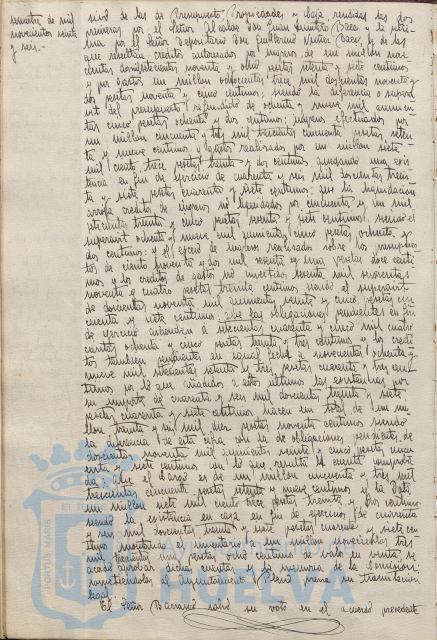 mestre de mil
novecientos veinte
y seis.-
sivo de las de Presupuesto, Propiedades y baja rendidas las dos
primeras por el Señor Alcalde Don Juan Quintero Báez y la última
por el Señor Depositario Don Guillermo y de las
que resultan créditos autorizados por ingresos de un millón nove
cientas noventa y ocho pesetas setenta y siete céntimos
y por gastos un millón ochocientas trece mil doscientas noventa y
dos pesetas noventa y cinco céntimos; siendo la diferencia o superá
vit del presupuesto refundido de ochenta y nueve mil quinien
tas cinco pesetas ochenta y dos céntimos; ingresos efectuados por
un millón cincuenta y tres mil trescientas cincuenta pesetas setenta
y nueve céntimos y gastos realizados por un millón siete
mil ciento trece pesetas treinta y dos céntimos quedando una exis
tencia en fin de ejercicio de cuarenta y seis mil doscientas trein
ta y siete pesetas cuarenta y siete céntimos; que la liquidación
arroja créditos de ingresos no liquidados por cincuenta y un mil
pesetas y siete céntimos, siendo el
superávit ochenta y nueve mil quinientas cinco pesetas ochenta y
dos céntimos; y el exceso de ingresos realizados sobre los presupues
tos de ciento noventa y dos mil setenta y una pesetas doce cénti
mos y los créditos de gastos no invertidos sesenta mil
noventa y cuatro pesetas treinta céntimos siendo el superávit
de doscientas noventa mil quinientas veinte y cinco pesetas cin
cuenta y siete céntimos; que las obligaciones pendientes en fin
de ejercicio ascienden a setecientas cuarenta y cinco mil cuatro
cientas ochenta y cinco pesetas treinta y tres céntimos y los crédi
tos también pendientes en igual fecha a novecientas ochenta y
nueve mil setenta y tres pesetas cuarenta y tres cén
timos por lo que añadidos a estos últimos las existencias por
su importe de cuarenta y seis mil doscientas treinta y siete
pesetas cuarenta y siete céntimos hacen un total de un mi
llón treinta y seis mil diez pesetas noventa céntimos siendo
la diferencia de esta cifra con la de obligaciones pendientes, de
doscientas noventa mil quinientas veinte y cinco pesetas cincu
enta y siete céntimos con lo que resulta la cuenta comproba
da; que el Cargo es de un millón cincuenta y tres mil
trescientas cincuenta pesetas setenta y nueve céntimos y la Data
un millón siete mil ciento trece pesetas treinta y dos céntimos
siendo la existencia en caja en fin de ejercicio de cuarenta
y seis mil doscientas treinta y siete pesetas cuarenta y siete cén
timos importando el inventario a un millón tres
mil pesetas ocho céntimos el valor en venta, se
acordó aprobar dichas cuentas y la memoria de la Comisión,
sometiéndolas al Ayuntamiento Pleno previa su tramitación
legal.
El Señor Barranco salvó su voto en el acuerdo precedente
PORTUS MARIS